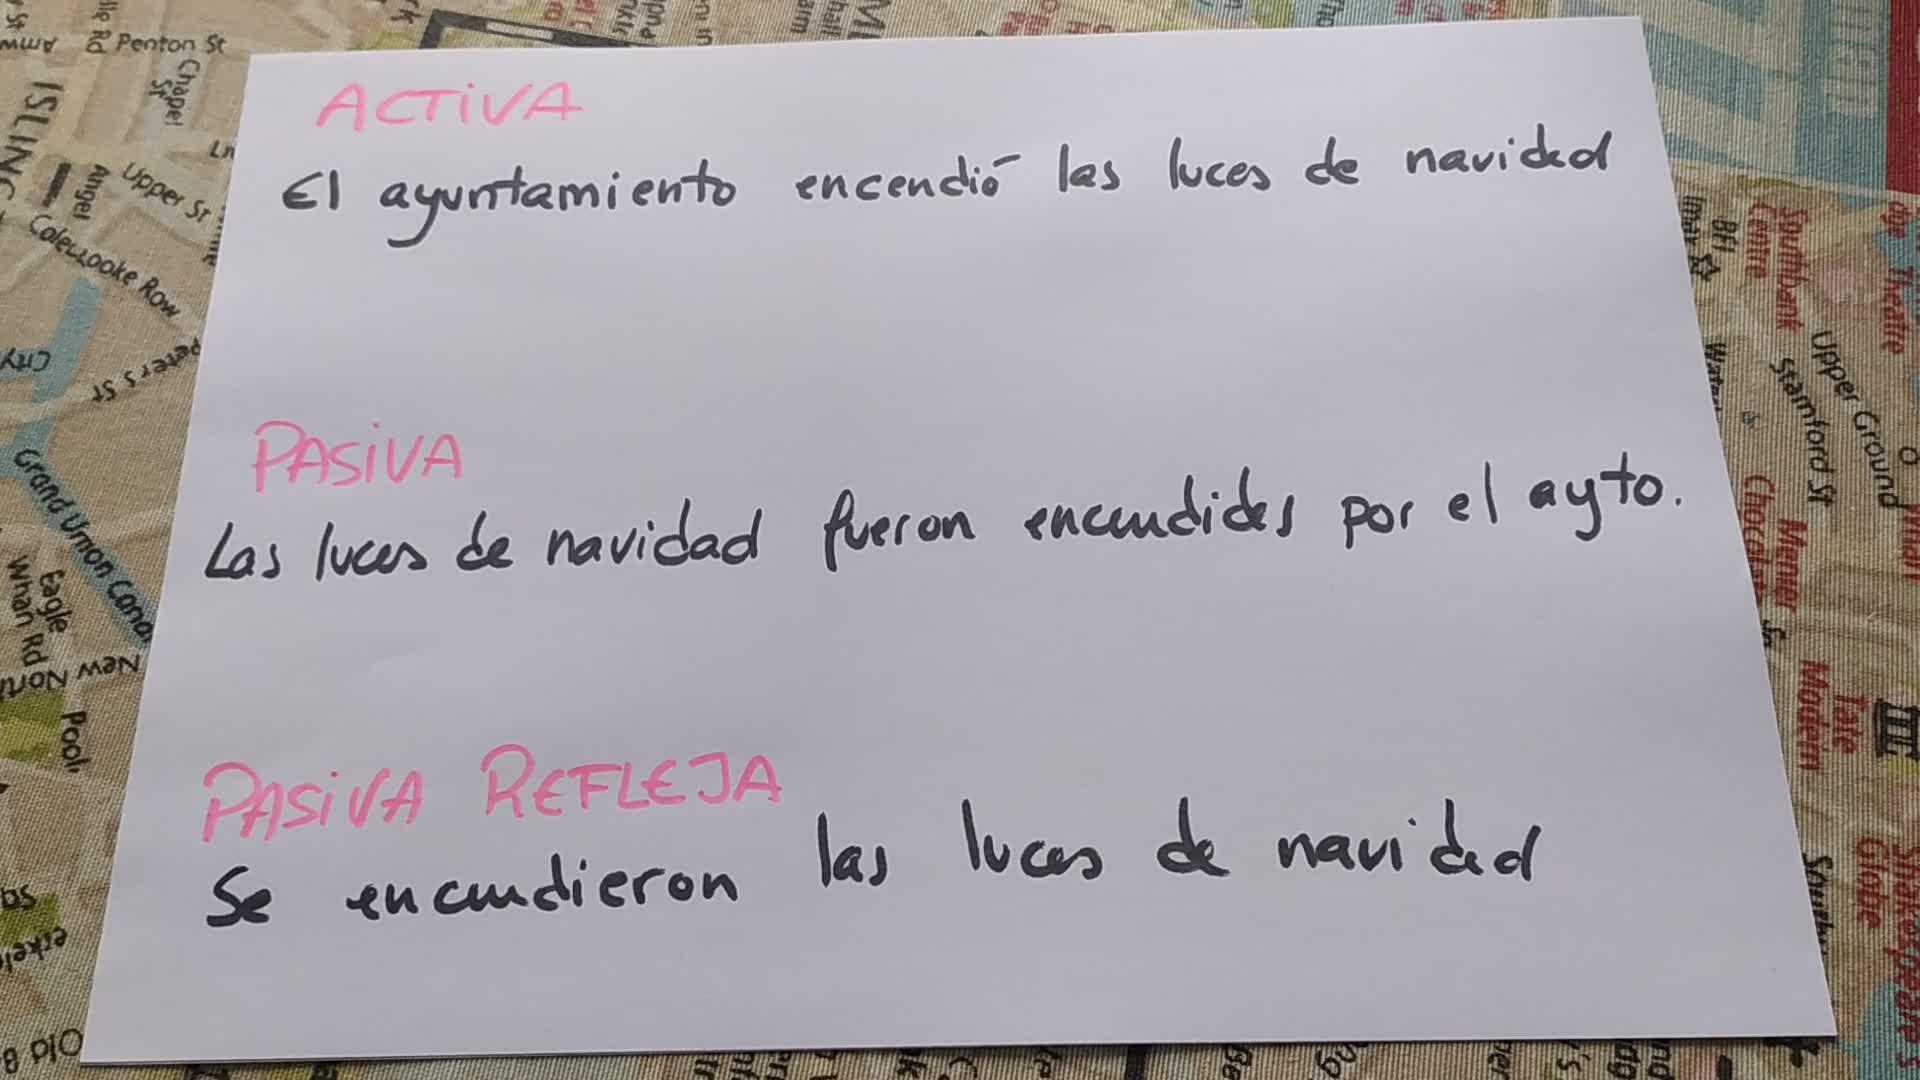 ACTIVA
El ayuntamiento encendió las luces de navidad
PASIVA
Las luces de navidad fueron encendidas por el ayto.
PASIVA REFLEJA
Se encendieron las luces de navidad
Penton St
Chapel St
Upper St
Angel
Colebrooke Row
Peters St
City
Grand Union Canal
Eagle
Wharf Rd
New North
Pool
Old
BFI
Southbank Centre
Theatre
Upper Ground
Stamford St
Tate Modern
Shakespeare's Globe